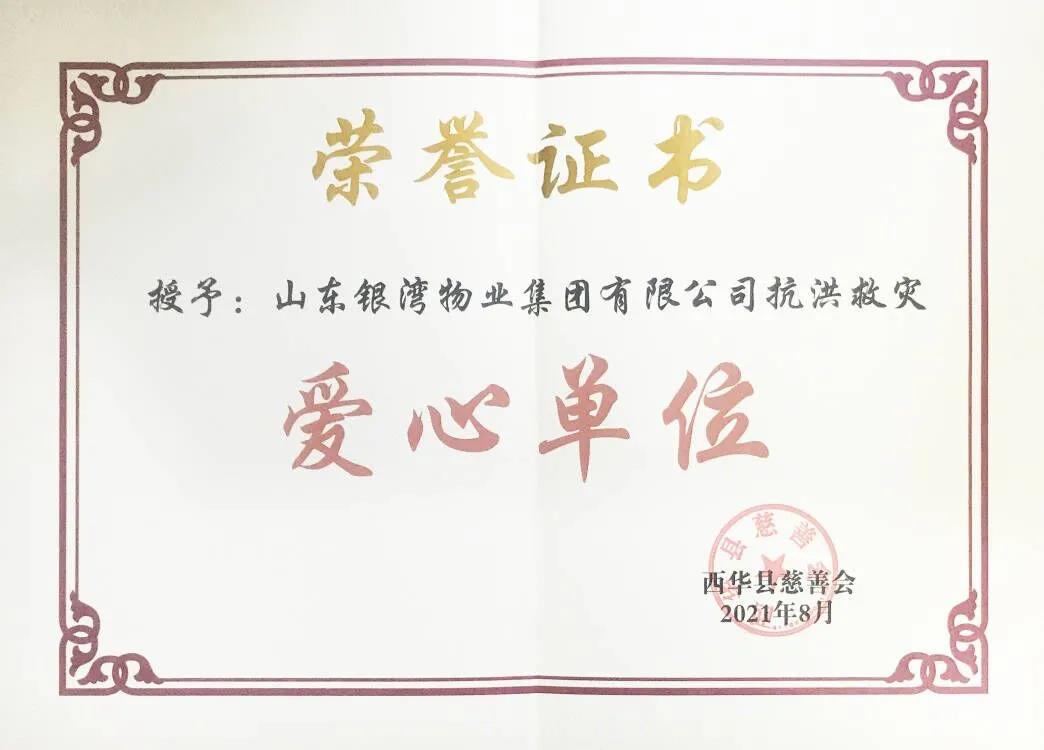 荣誉证书
授予：山东银湾物业集团有限公司抗洪救灾
爱心单位
西华县慈善会
2021年8月